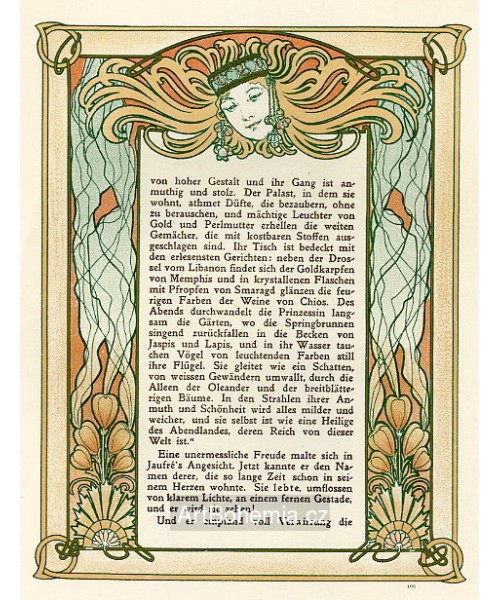 von hoher Gestalt und ihr Gang ist an-
muthig und stolz. Der Palast, in dem sie
wohnt, athmet Düfte, die bezaubern, ohne
zu berauschen, und mächtige Leuchter von
Gold und Perlmutter erhellen die weiten
Gemächer, die mit kostbaren Stoffen aus-
geschlagen sind. Ihr Tisch ist bedeckt mit
den erlesensten Gerichten: neben der Dros-
sel vom Libanon findet sich der Goldkarpfen
von Memphis und in krystallenen Flaschen
mit Pfropfen von Smaragd glänzen die feu-
rigen Farben der Weine von Chios. Des
Abends durchwandelt die Prinzessin lang-
sam die Gärten, wo die Springbrunnen
singend zurückfallen in die Becken von
Jaspis und Lapis, und in ihr Wasser tau-
chen Vögel von leuchtenden Farben still
ihre Flügel. Sie gleitet wie ein Schatten,
von weissen Gewändern umwallt, durch die
Alleen der Oleander und der breitblätte-
rigen Bäume. In den Strahlen ihrer An-
muth und Schönheit wird alles milder und
weicher, und sie selbst ist wie eine Heilige
des Abendlandes, deren Reich von dieser
Welt ist."
Eine unermessliche Freude malte sich in
Jaufré's Angesicht. Jetzt kannte er den Na-
men derer, die so lange Zeit schon in sei-
nem Herzen wohnte. Sie lebte, umflossen
von klarem Lichte, an einem fernen Gestade,
und er wird sie sehen!
Und er empfand voll Verwirrung die
ArtBohemia.cz